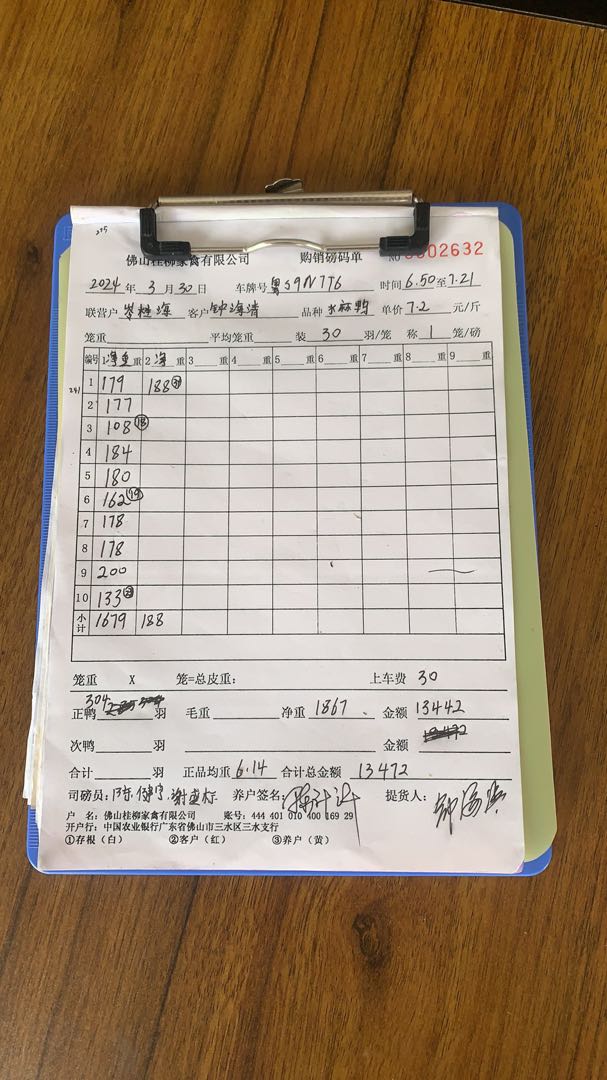 佛山桂柳家禽有限公司 购销磅码单 NO 0002632
2024 年 3 月 30 日 车牌号 粤S9N776 时间 6.50至7.21
联营户 岑桂海 客户 钟海清 品种 水麻鸭 单价 7.2 元/斤
笼重 平均笼重 装 30 羽/笼 称 1 笼/磅
编号 1净重 重 2 净 重 3 重 4 重 5 重 6 重 7 重 8 重 9 重
1 179 188
2 177
3 108 18
4 184
5 180
6 162
7 178
8 178
9 200
10 133
小计 1679 188
笼重 X 笼=总皮重: 上车费 30
正鸭 304 羽 毛重 净重 1867 金额 13442
次鸭 羽 金额
合计 羽 正品均重 6.14 合计总金额 13472
司磅员: 养户签名: 提货人:
户 名: 佛山桂柳家禽有限公司 账号: 444 401 010 400 169 29
开户行: 中国农业银行广东省佛山市三水区三水支行
①存根（白） ②客户（红） ③养户（黄）